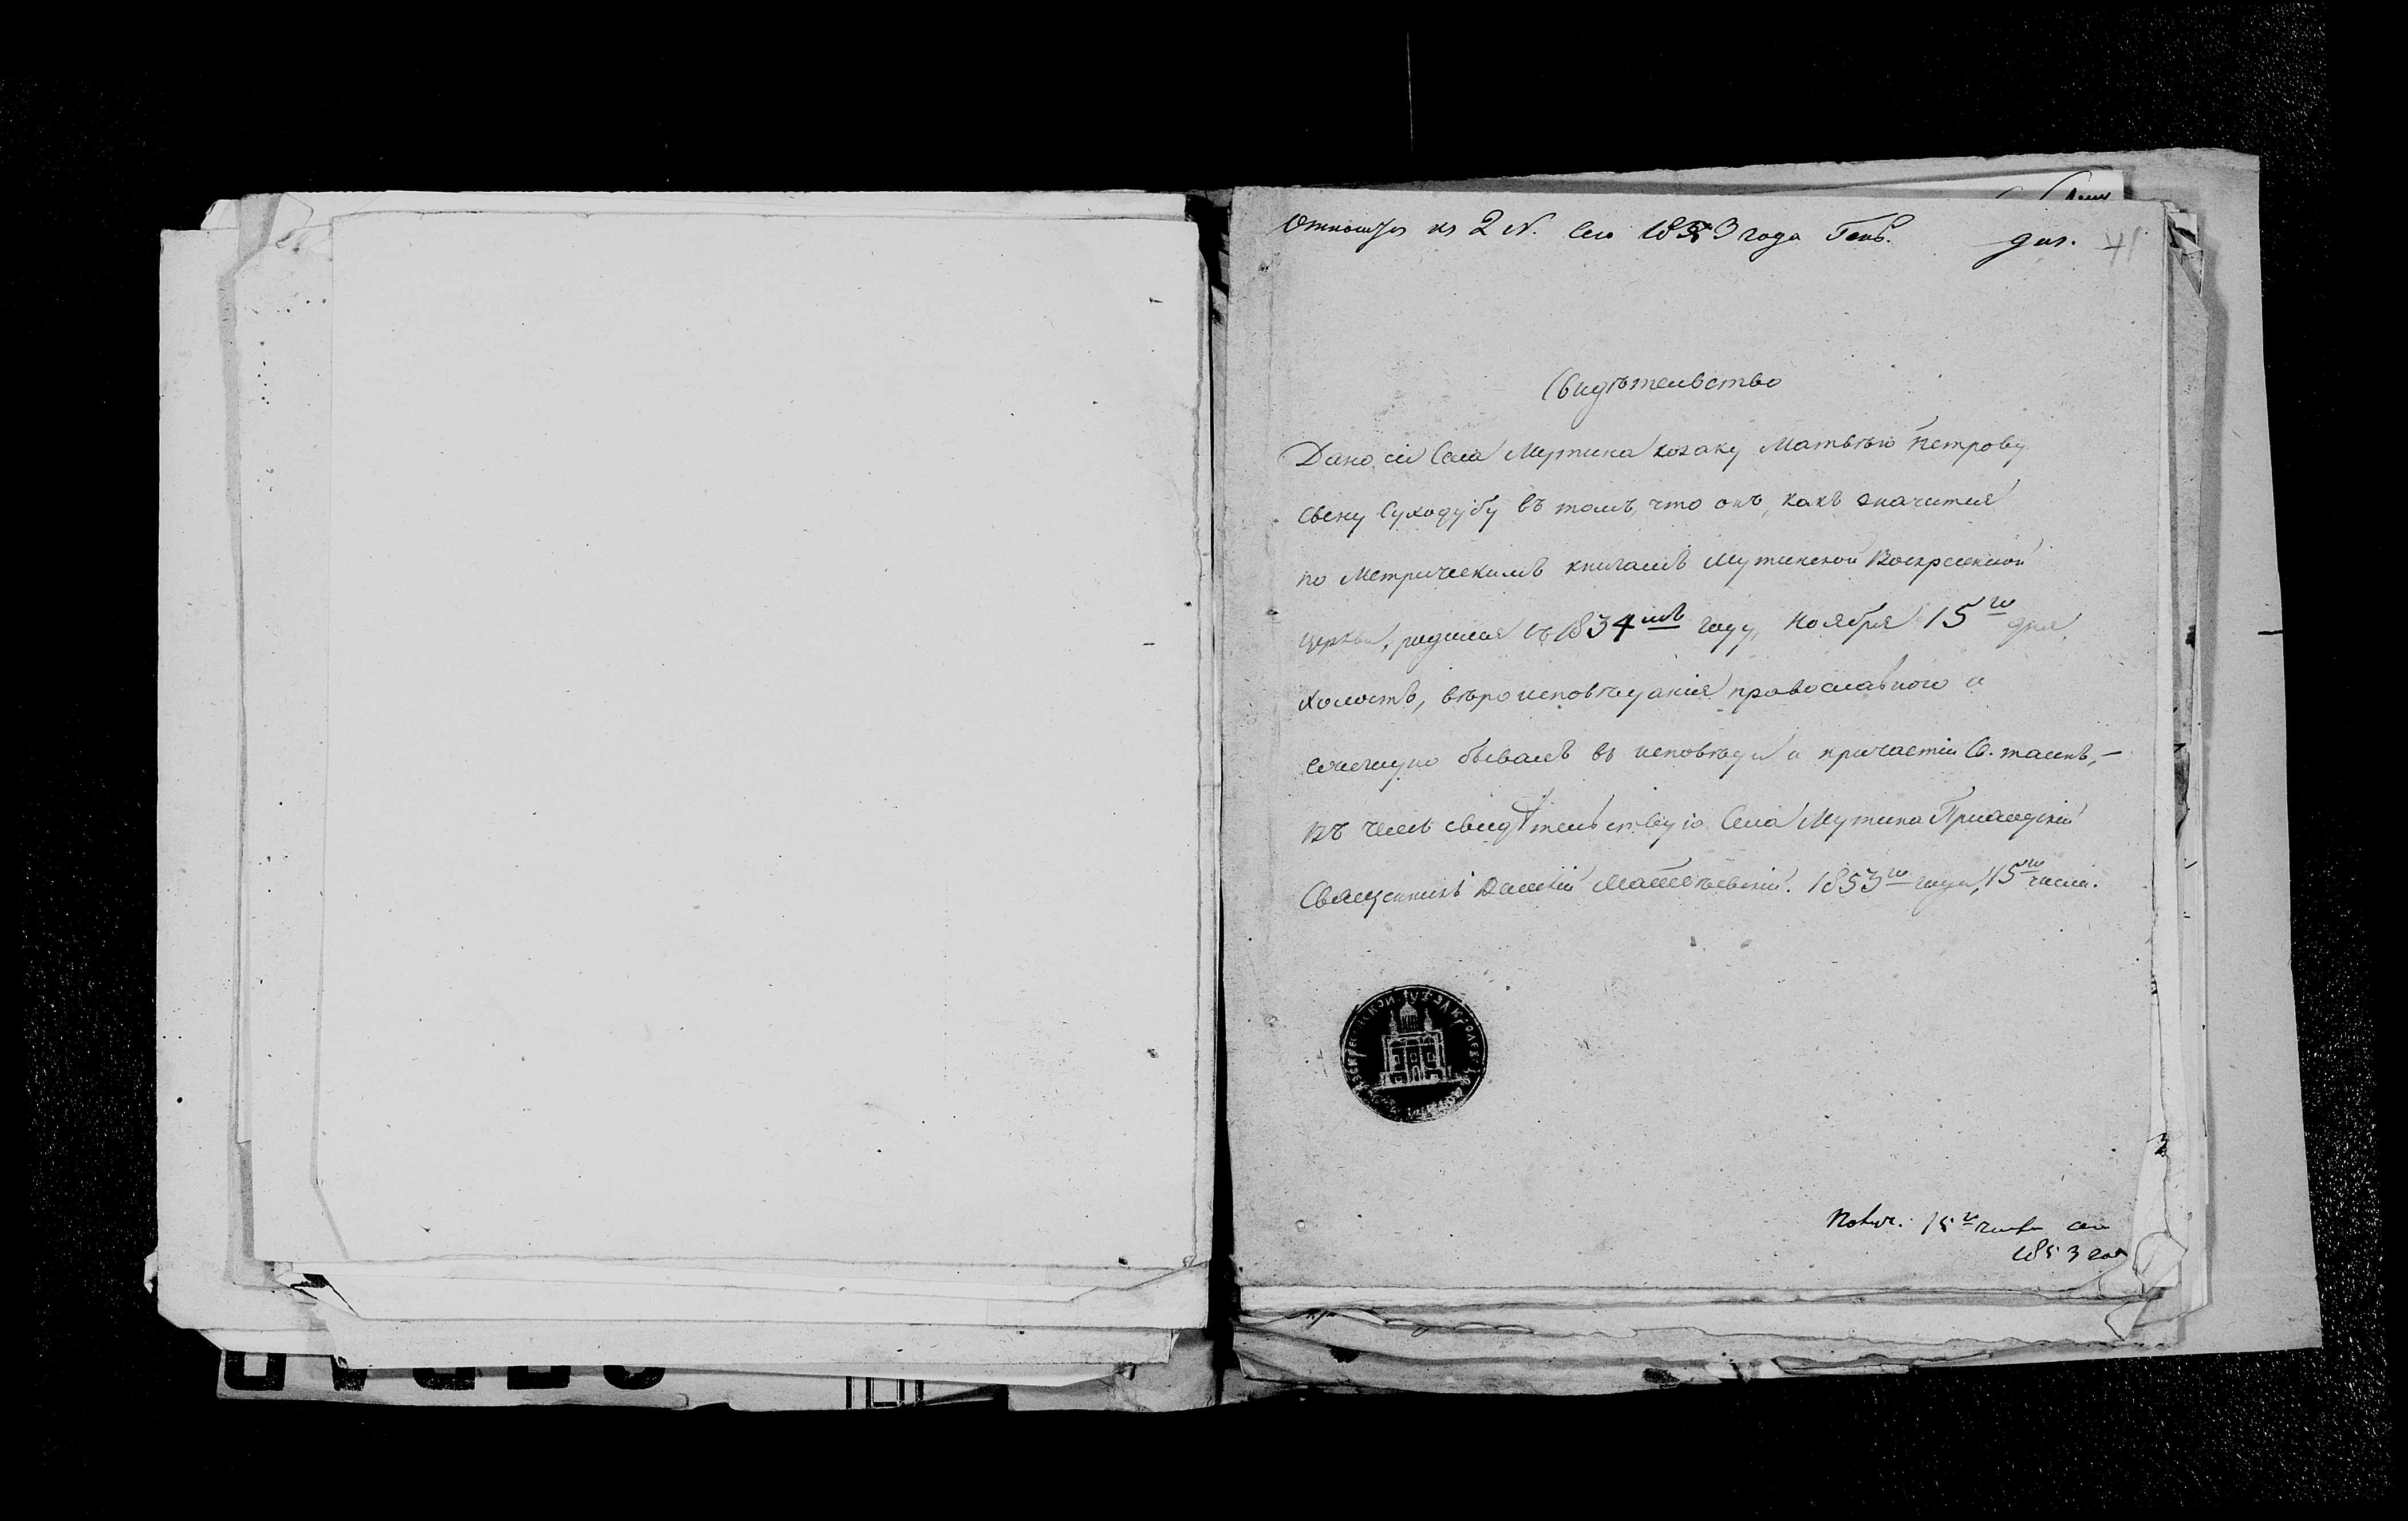 Относится къ 2 №. сего 1853 года Генв. дня. 41
Свидѣтельство
Дано сіе Села Мутина козаку Матвѣю Петрову
сыну Суходубу въ томъ, что онъ, какъ значится
по Метрическимъ книгамъ Мутинской Воскресенской
церкви, родился въ 1834мъ году, Ноября 15го дня,
холостъ, вѣроисповѣданія православного и
ежегодно бываетъ въ исповѣди и причастіи Св. таинъ, –
въ чемъ свидѣтельствую Села Мутина Приходскій
Священникъ Матвѣевскій. 1853го года, 15го
15го сего
1853 года